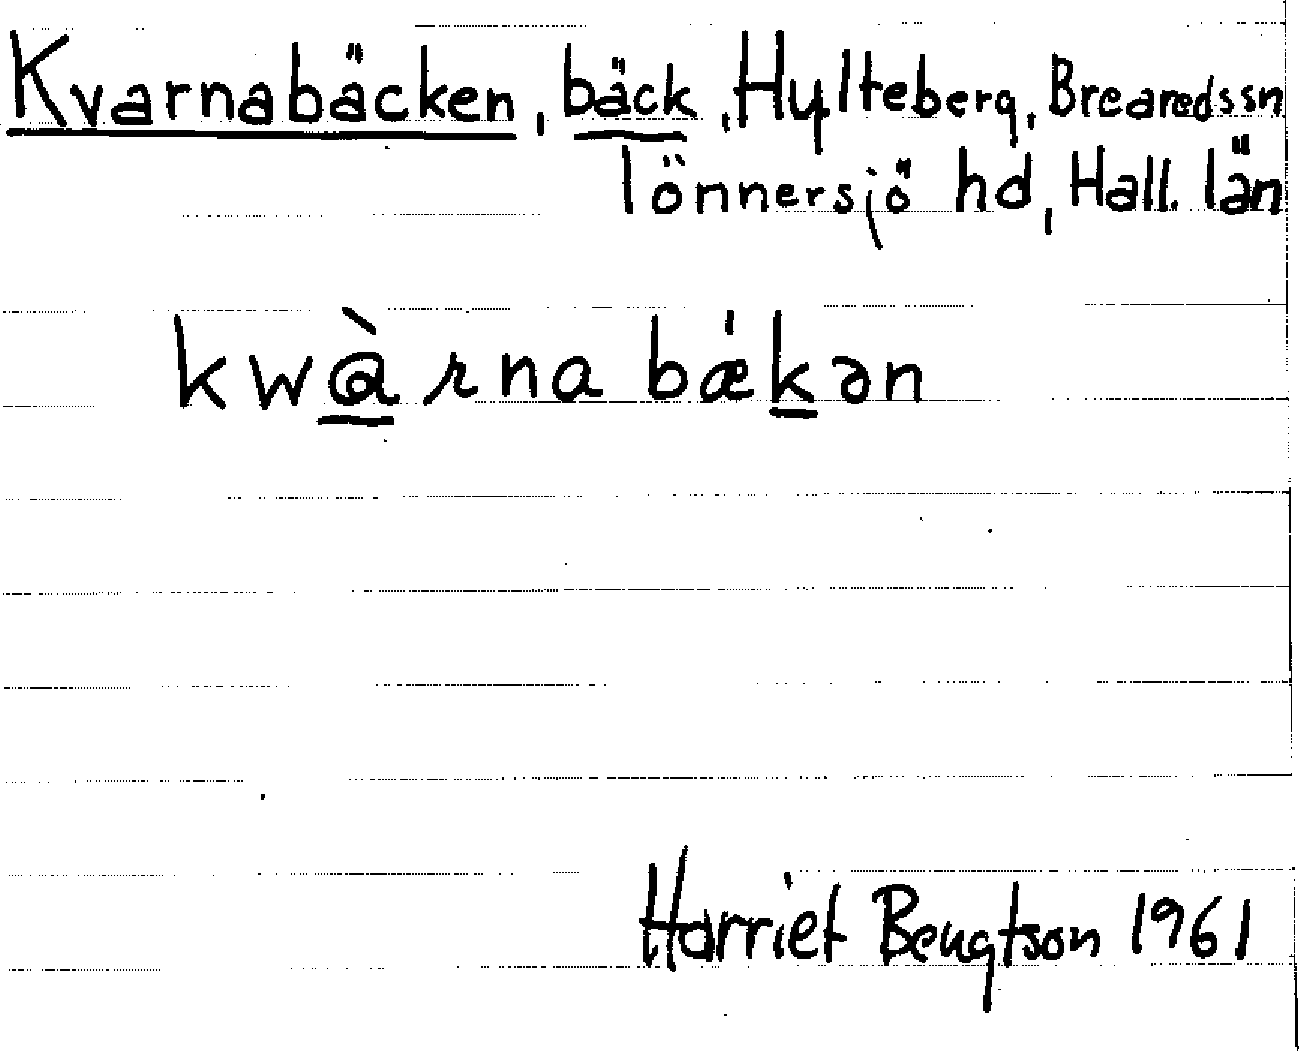 Kvarnabäcken, bäck, Hylteberg, Brearedssn
Tönnersjö hd, Hall. län
kwà̱rna bǽḵən
Harriet Bengtson 1961